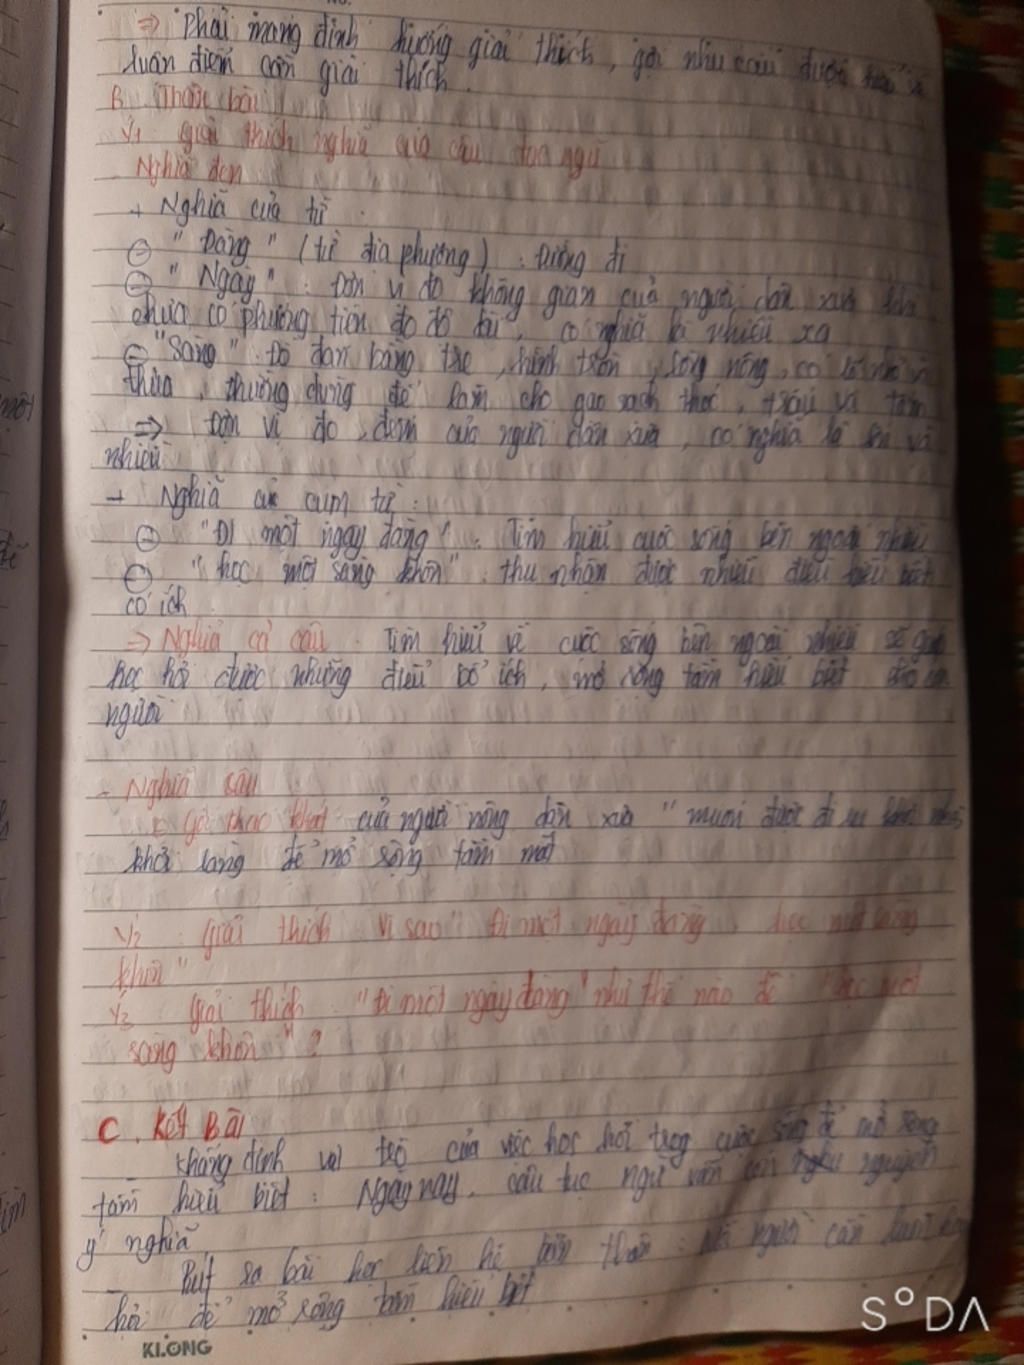 ⇒ Phải mang định hướng giải thích, gợi nhu cầu được hiểu về
luận điểm cần giải thích.
B. Thân bài
Ý1 giải thích nghĩa của câu tục ngữ
- Nghĩa đen
+ Nghĩa của từ
⊖ "Đàng" (từ địa phương) : Đường đi
⊖ "Ngày" : Đơn vị đo không gian của người dân xưa khi
chưa có phương tiện đo độ dài, có nghĩa là nhiều xa
⊖ "Sàng" : Đồ đan bằng tre, hình tròn, lòng nông, có lỗ nhỏ
thưa, thường dùng để làm cho gạo sạch thóc, trấu và tấm
⇒ Đơn vị đo, đếm của người dân xưa, có nghĩa là
nhiều
+ Nghĩa của cụm từ :
⊖ "Đi một ngày đàng" : Tìm hiểu cuộc sống bên ngoài nhiều
⊖ "học một sàng khôn" : thu nhận được nhiều điều hiểu biết
có ích
⇒ Nghĩa cả câu : Tìm hiểu về cuộc sống bên ngoài nhiều sẽ giúp
học hỏi được những điều bổ ích, mở rộng tầm hiểu biết
người
- Nghĩa sâu
của người nông dân xưa "muốn được đi ra khỏi
khỏi làng để mở rộng tầm mắt
Ý2 : Giải thích vì sao "Đi một ngày đàng, học một sàng
khôn"
Ý3 Giải thích : "Đi một ngày đàng" như thế nào để "học một
sàng khôn" ?
C. Kết Bài
Khẳng định vai trò của việc học hỏi trog cuộc sống để mở rộng
tầm hiểu biết : Ngày nay, câu tục ngữ vẫn còn nguyên
ý nghĩa
- Rút ra bài học liên hệ bản thân : Mỗi người cần
hỏi để mở rộng tầm hiểu biết
KLONG
S°DA